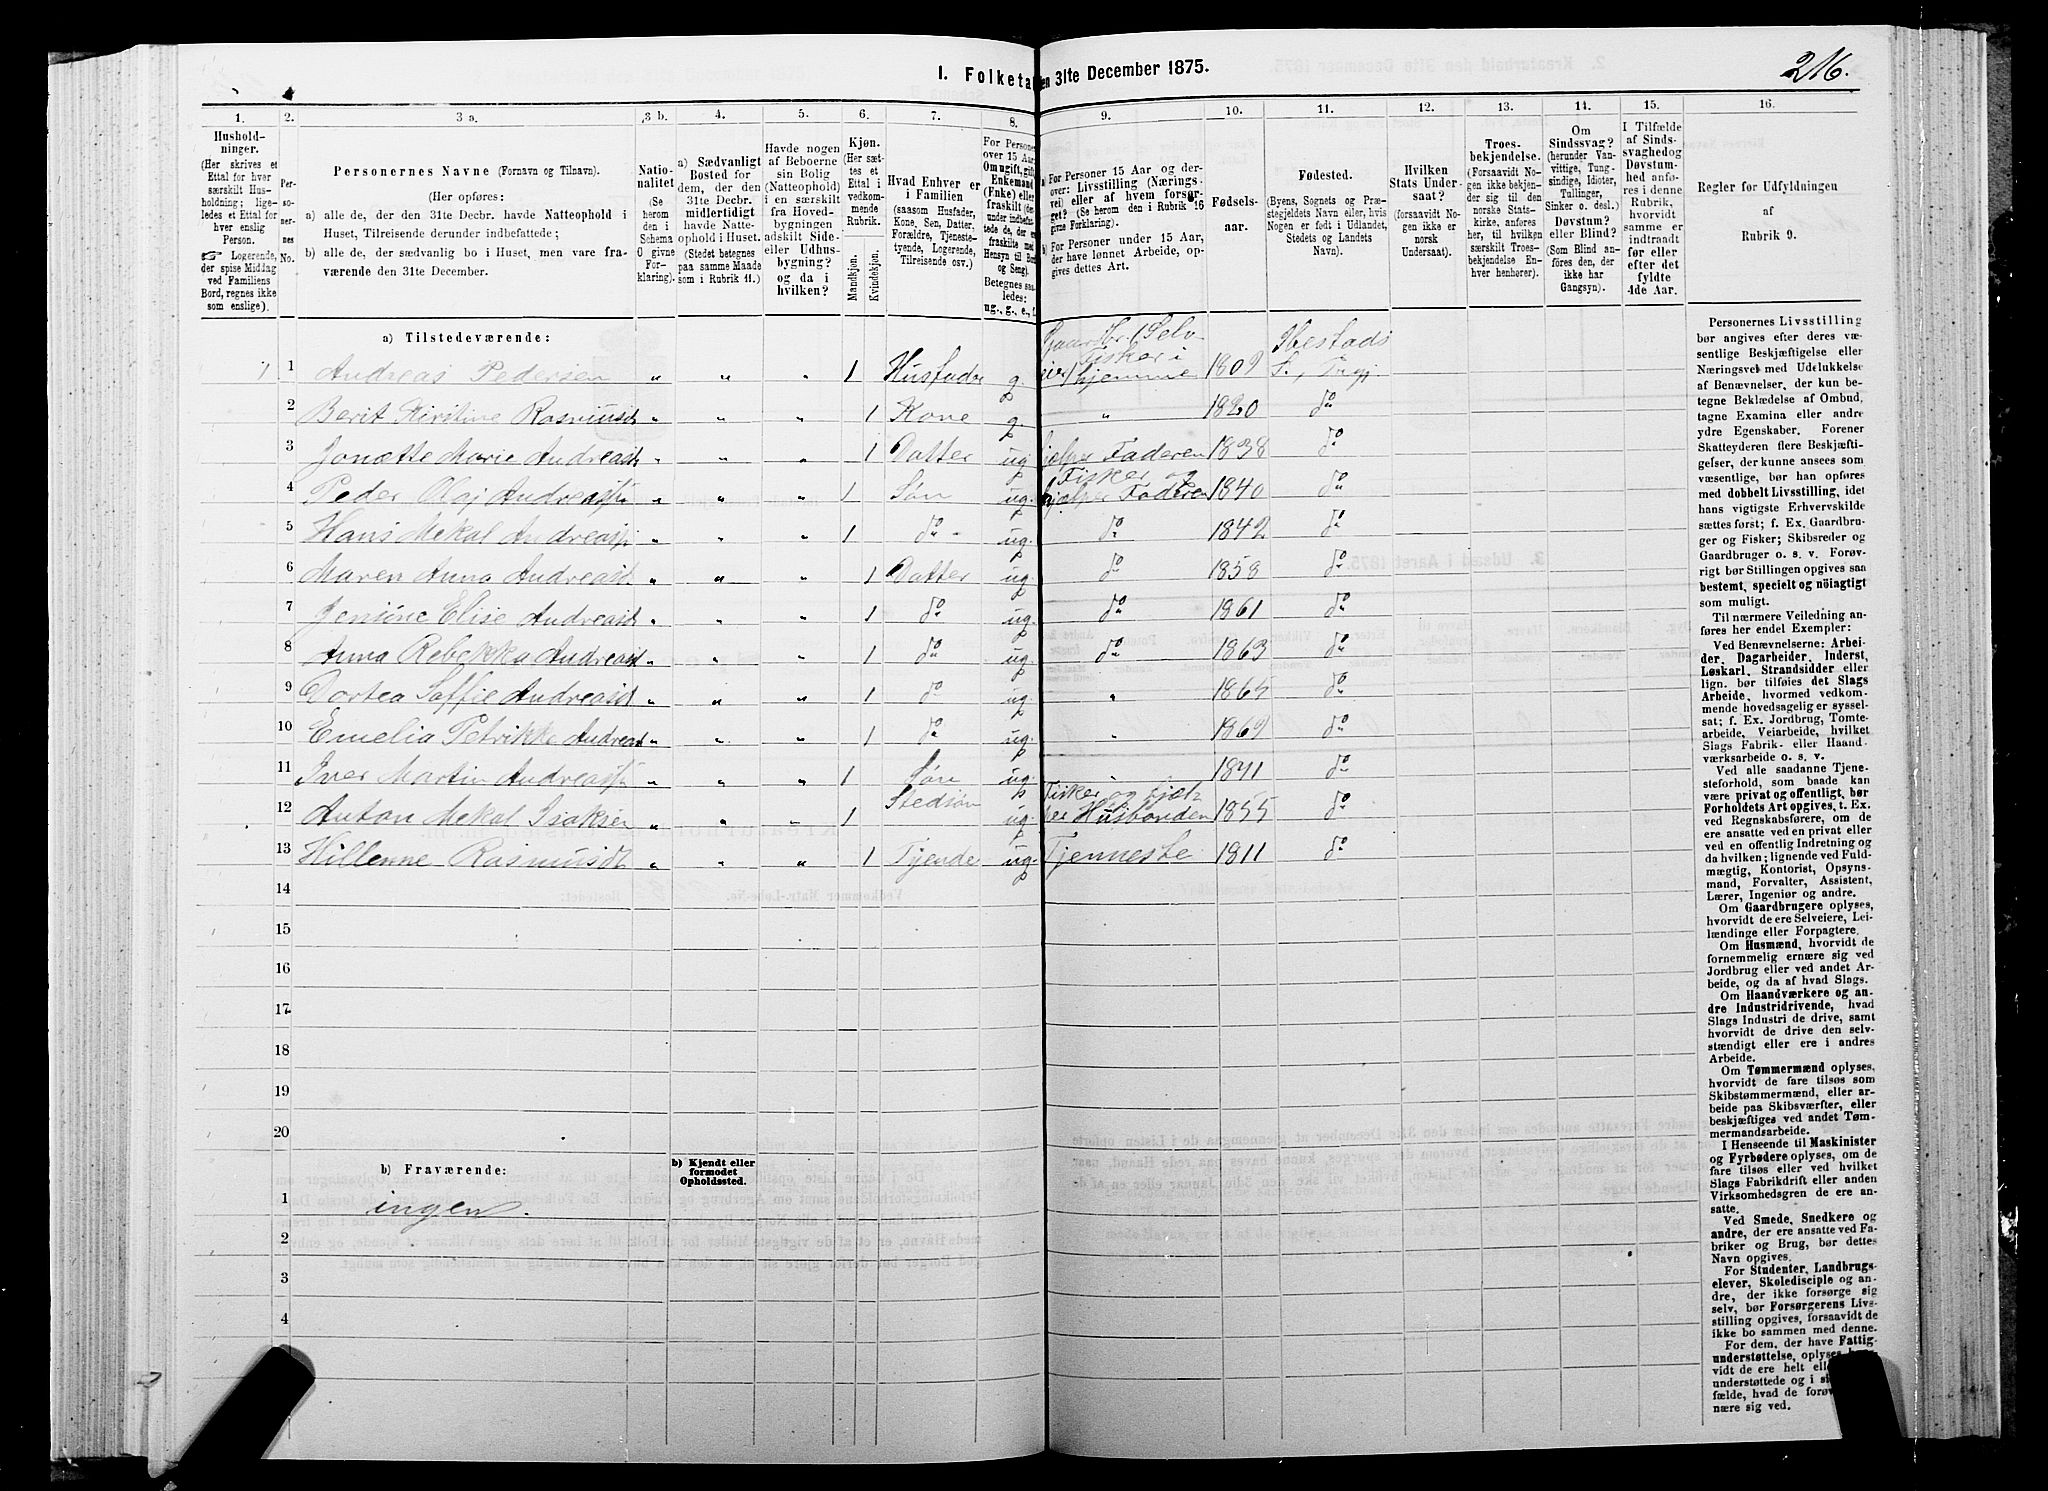 216.
I. Folketa en 31te December 1875.
1. 2. 3 a. 3 b. 4. 5. 6. 7. 8. 9. 10. 11. 12. 13. 14. 15. 16.
Hushold-
ninger.
(Her skrives et
Ettal for hver
særskilt Hus-
holdning; lige-
ledes et Ettal for
hver enslig
Person.
☞ Logerende,
der spise Middag
ved Familiens
Bord, regnes ikke
som enslige).
Per-
so-
ner-
nes
No.
Personernes Navne (Fornavn og Tilnavn).
(Her opføres:
a) alle de, der den 31te Decbr. havde Natteophold i
Huset, Tilreisende derunder indbefattede;
b) alle de, der sædvanlig bo i Huset, men vare fra-
værende den 31te December.
Natio-
nalitet
(Se
herom
den i
Schema
O givne
For-
klaring).
a) Sædvanligt
Bosted for
dem, der den
31te Decbr.
midlertidigt
havde Natte-
ophold i Huset.
(Stedet betegnes
paa samme Maade
som i Rubrik 11.)
Havde nogen
af Beboerne
sin Bolig
(Natteophold)
i en særskilt
fra Hoved-
bygningen
adskilt Side-
eller Udhus-
bygning?
og da i
hvilken?
Kjøn.
(Her sæt-
tes et
Ettal i
vedkom-
mende
Rubrik.
Mandkjøn.
Kvindekjøn.
Hvad Enhver er
i Familien
(saasom Husfader,
Kone, Søn, Datter,
Forældre, Tjeneste-
tyende, Logerende,
Tilreisende osv.)
For Personer
over 15 Aar:
Om ugift, gift,
Enkemand
(Enke) eller
fraskilt
Betegnes saa-
ledes:
ug., g., e.,
a) For Personer 15 Aar og der-
over: Livsstilling (Nærings-
vei) eller af hvem forsør-
get? (Se herom den i Rubrik 16
givne Forklaring).
b) For Personer under 15 Aar,
der have lønnet Arbeide, op-
gives dettes Art.
Fødsels-
aar.
Fødested.
(Byens, Sognets og Præ-
stegjeldets Navn eller, hvis
Nogen er født i Udlandet,
Stedets og Landets
Navn).
Hvilken
Stats Under-
saat?
(forsaavidt No-
gen ikke er
norsk
Undersaat).
Troes-
bekjendelse.
(Forsaavidt No-
gen ikke bekjen-
der sig til den
norske Stats-
kirke, anføres
her, til hvilken
særskilt Troes-
bekjendelse En-
hver henhører).
Om
Sindssvag?
(herunder Van-
vittige, Tung-
sindige, Idioter,
Tullinger,
Sinker o. desl.)
Døvstum?
eller Blind?
(Som Blind an-
føres den, der
ikke har
Gangsyn).
I Tilfælde
af Sinds-
svaghed og
Døvstum-
hed anfø-
res i denne
Rubrik,
hvorvidt
samme er
indtraadt
før eller
efter det
fyldte
4de Aar.
Regler for Udfyldningen
af
Rubrik 9.
a) Tilstedeværende:
1 1 Andreas Pedersen " " " 1 Husfader g. Gaardbr. (Selv eier) Fisker i hjemme 1809 Ibestads S.,
2 Berit Kirstine Rasmusd " " " 1 Kone g. " 1820 do
3 Jonette Marie Andreasd " " " 1 Datter ug hjelper Faderen 1838 do
4 Peder Olaj Andreas " " " 1 Søn ug. Fisker og hjelper Faderen 1840 do
5 Hans Mekal Andreas " " " 1 do ug. do 1842 do
6 Maren Anna Andreasd " " " 1 Datter ug. do 1858 do
7 Jensine Elise Andreasd " " " 1 do ug. do 1861 do
8 Anna Rebekka Andreasd " " " 1 do ug. do 1863 do
9 Dortea Soffie Andreasd " " " 1 do ug " do
10 Emelia Petrikke Andreasd " " " 1 do ug. " 1869 do
11 Iver Martin Andreas " " " 1 Søn ug. " do
12 Anton Mekal Isaksen " " " 1 Stedsøn ug. Fisker og hjelper Husbonden 1855 do
13 Hillenne Rasmusdt " " " 1 Tjende ug. Tjenneste 1811 do
14
15
16
17
18
19
20
b) Fraværende:
b) Kjendt eller
formodet
Opholdssted.
1 ingen.
2
3
4
Personernes Livsstilling
bør angives efter deres væ-
sentlige Beskjæftigelse eller
Næringsvei med Udelukkelse
af Benævnelser, der kun be-
tegne Beklædelse af Ombud,
tagne Examina eller andre
ydre Egenskaber. Forener
Skatteyderen flere Beskjæfti-
gelser, der kunne ansees som
væsentlige, bør han opføres
med dobbelt Livsstilling, idet
hans vigtigste Erhvervskilde
sættes først; f. Ex. Gaardbru-
ger og Fisker; Skibsreder og
Gaardbruger o. s. v. Forøv-
rigt bør Stillingen opgives saa
bestemt, specielt og nöiagtigt
som muligt.
Til nærmere Veiledning an-
føres her endel Exempler:
Ved Benævnelserne: Arbei-
der, Dagarbeider, Inderst,
Løskarl, Strandsidder eller
lign. bør tilføies det Slags
Arbeide, hvormed vedkom-
mende hovedsagelig er syssel-
sat; f. Ex. Jordbrug, Tomte-
arbeide, Veiarbeide, hvilket
Slags Fabrik- eller Haand-
værksarbeide o. s. v.
Ved alle saadanne Tjene-
steforhold, som baade kan
være privat og offentligt, bør
Forholdets Art opgives, t. Ex.
ved Regnskabsførere, om de
ere ansatte ved en privat eller
ved en offentlig Indretning og
da hvilken; lignende ved Fuld-
mægtig, Kontorist, Opsyns-
mand, Forvalter, Assistent,
Lærer, Ingeniør og andre.
Om Gaardbrugere oplyses,
hvorvidt de ere Selveiere, Lei-
lændinge eller Forpagtere.
Om Husmænd, hvorvidt de
fornemmelig ernære sig ved
Jordbrug eller ved andet Ar-
beide, og da af hvad Slags.
Om Haandværkere og an-
dre Industridrivende, hvad
Slags Industri de drive, samt
hvorvidt de drive den selv-
stændigt eller ere i andres
Arbeide.
Om Tømmermænd oplyses,
hvorvidt de fare tilsøs som
Skibstømmermænd, eller ar-
beide paa Skibsværfter, eller
beskjæftiges ved andet Tøm-
mermandsarbeide.
I Henseende til Maskinister
og Fyrbødere oplyses, om de
fare tilsøs eller ved hvilket
Slags Fabrikdrift eller anden
Virksomhedsgren de ere an-
satte.
Ved Smede, Snedkere og
andre, der ere ansatte ved Fa-
briker og Brug, bør dettes
Navn opgives.
For Studenter, Landbrugs-
elever, Skoledisciple og an-
dre, der ikke forsørge sig
selv, bør Forsørgerens Livs-
stilling opgives, forsaavidt de
ikke bo sammen med denne.
For dem, der have Fattig-
understøttelse, oplyses
vidt de ere helt
understøttede og i
fælde, hvad de
nære sig ved.